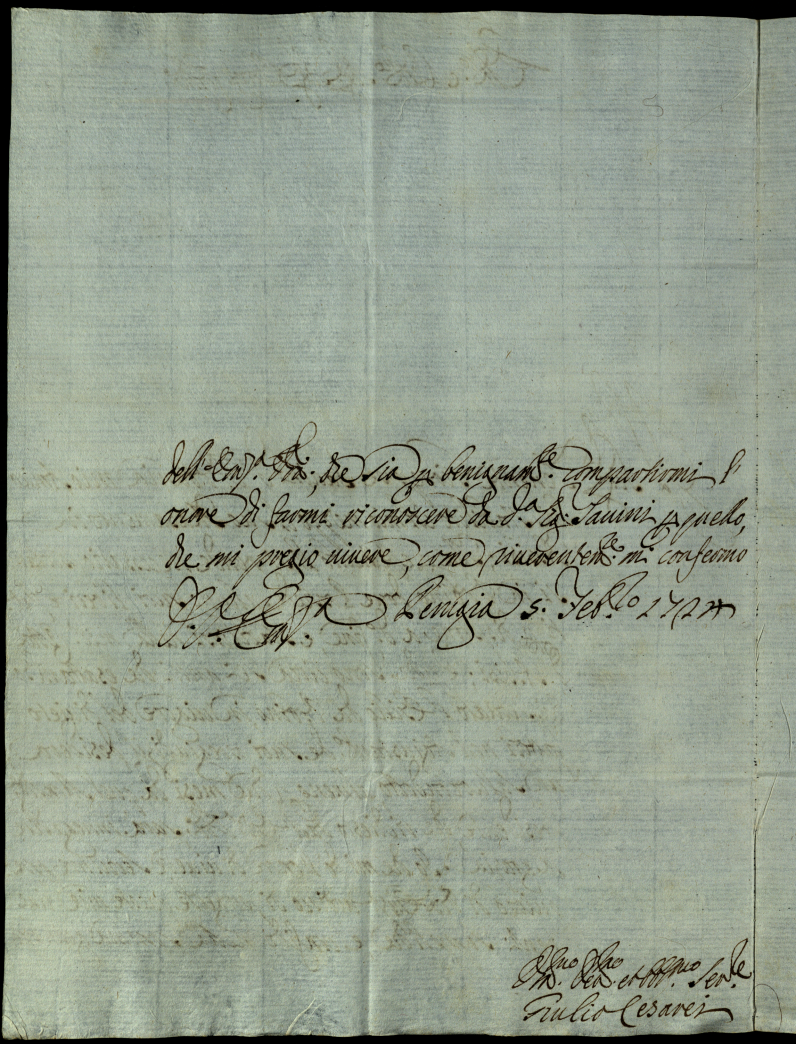 dell'Em.za V.ra, che sia p benignam.te compartirmi l'
onore di farmi riconoscere da d.a Sig. Savini p quello,
che mi pregio vivere, come riverentem.te mi confermo
Perugia 5: Feb.ro 1724
Um.mo Dev.mo et Obb.mo Ser.re
Giulio Cesarei